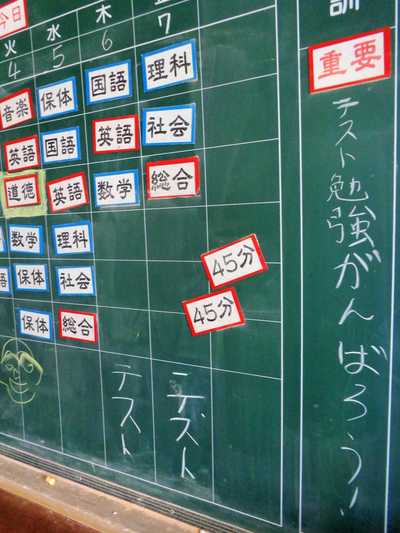 今日
火 水 木
4 5 6 7
音楽 保体 国語 理科
英語 国語 英語 社会
道徳 英語 数学 総合
数学 理科
語 保体 社会
保体 総合
45分
45分
テスト テズト
訓
重要
テスト勉強がんばろう!